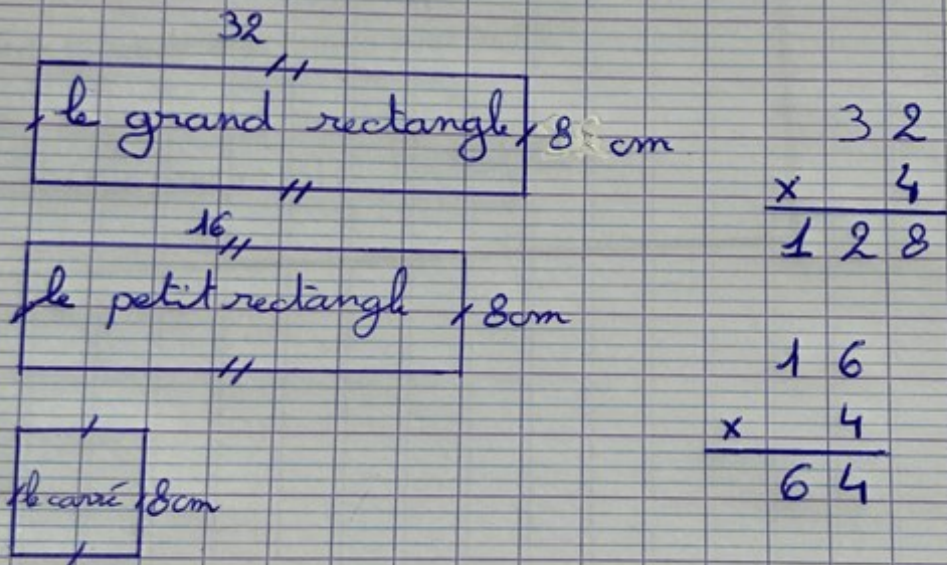 32
le grand rectangle 8 cm
16
le petit rectangle 8cm
le carré 8cm
32
x 4
128
16
x 4
64